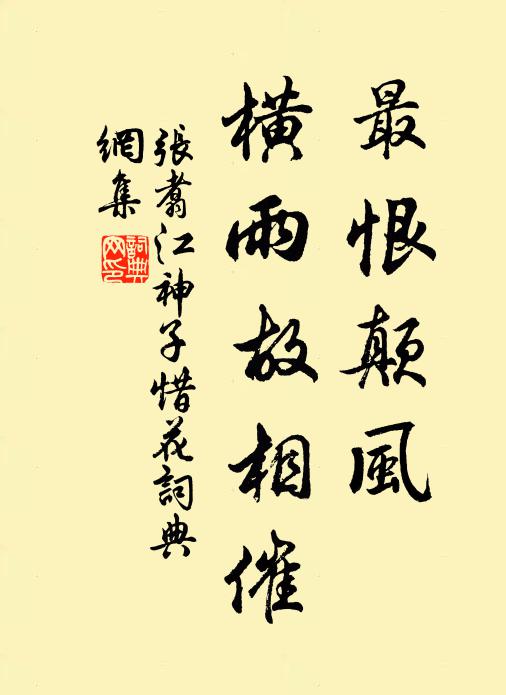 最恨顛風
橫雨故相催
張翥江神子惜花詞典
網集
詞典
网印